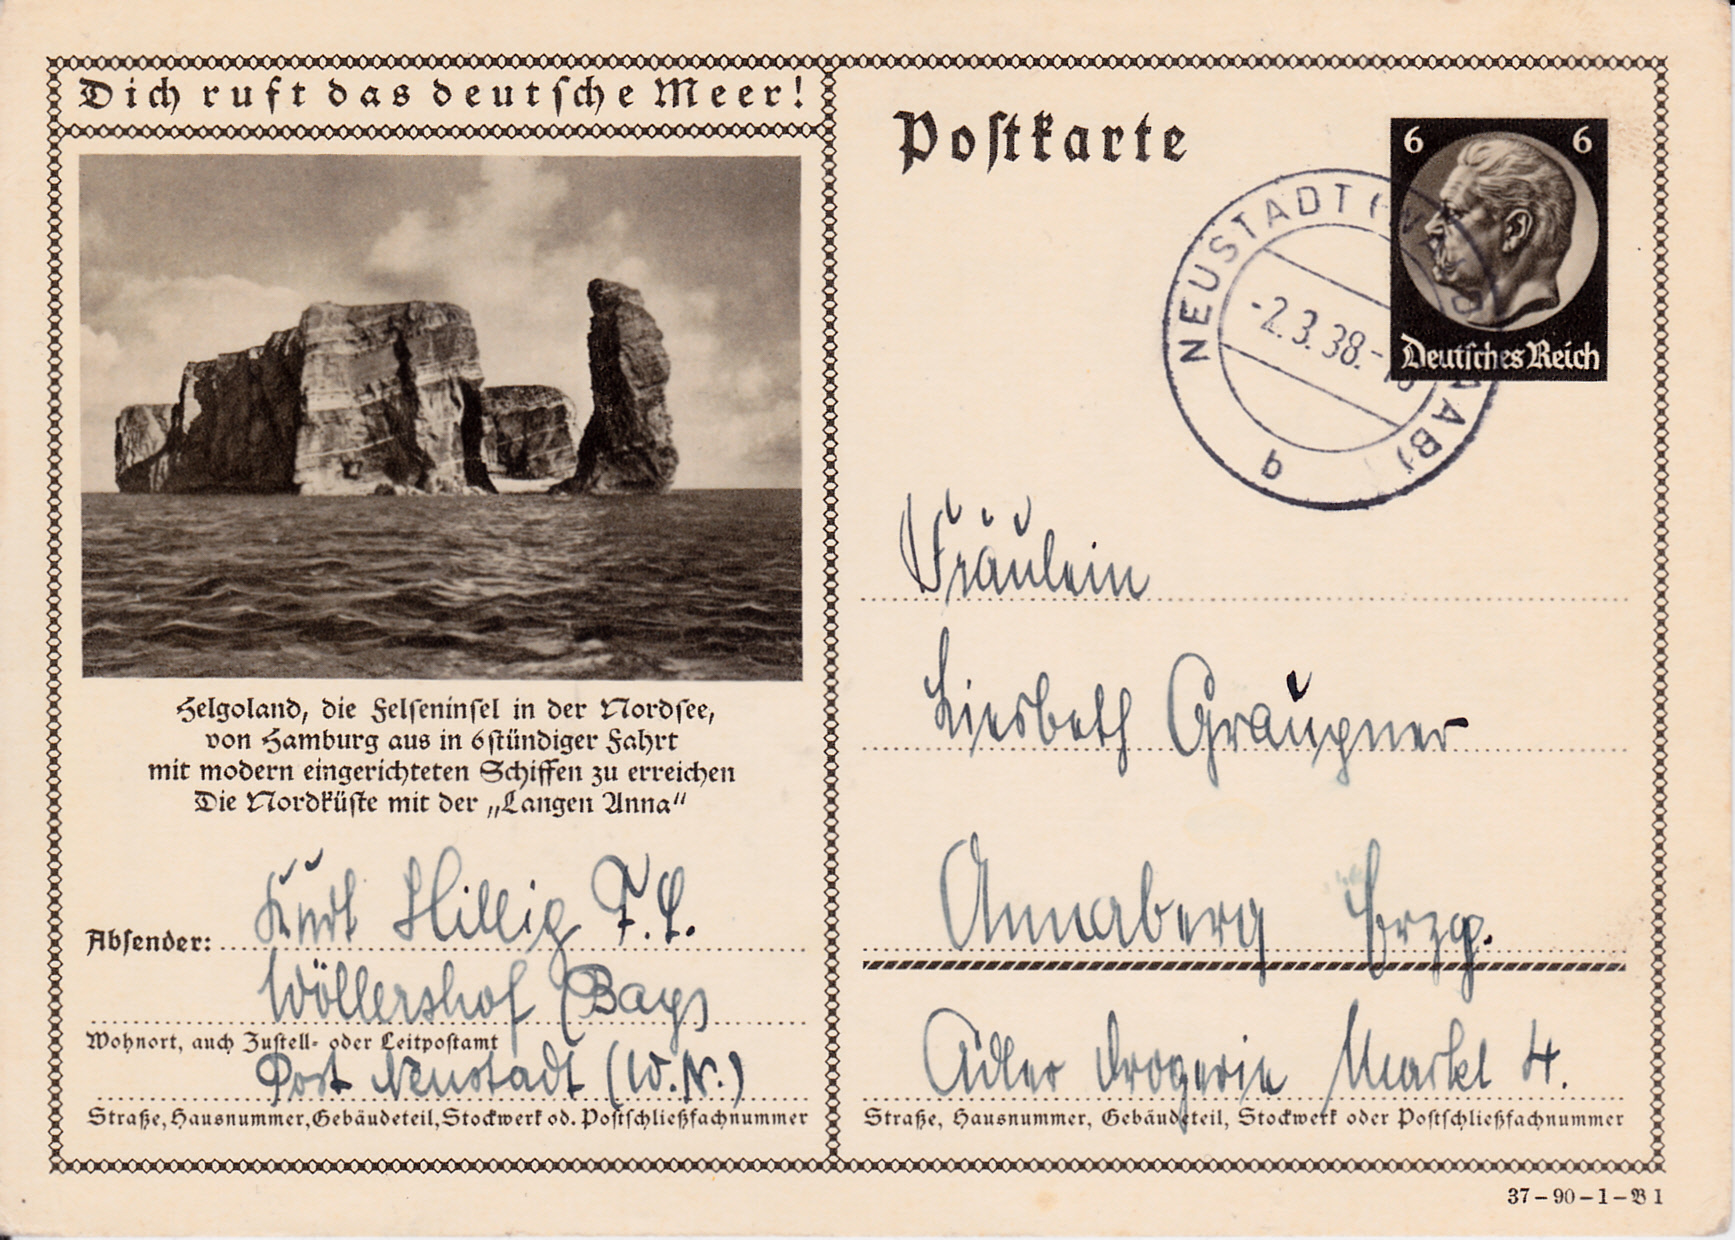 Dich ruft das deutsche Meer!
Helgoland, die Felseninsel in der Nordsee,
von Hamburg aus in 6stündiger Fahrt
mit modern eingerichteten Schiffen zu erreichen
Die Nordküste mit der „Langen Anna“
Absender: Kurt Hillig F.L.
Wöllershof (Bay)
Wohnort, auch Zustell- oder Leitpostamt
Post Neustadt (W.N.)
Straße, Hausnummer, Gebäudeteil, Stockwerk od. Postschließfachnummer
Postkarte
6 6
Deutsches Reich
NEUSTADT
-2.3.38.-
NAAB)
b
Fräulein
Liesbeth Graupner
Annaberg Erzg.
Adler Drogerie Markt 4.
Straße, Hausnummer, Gebäudeteil, Stockwerk oder Postschließfachnummer
37-90-1-B 1